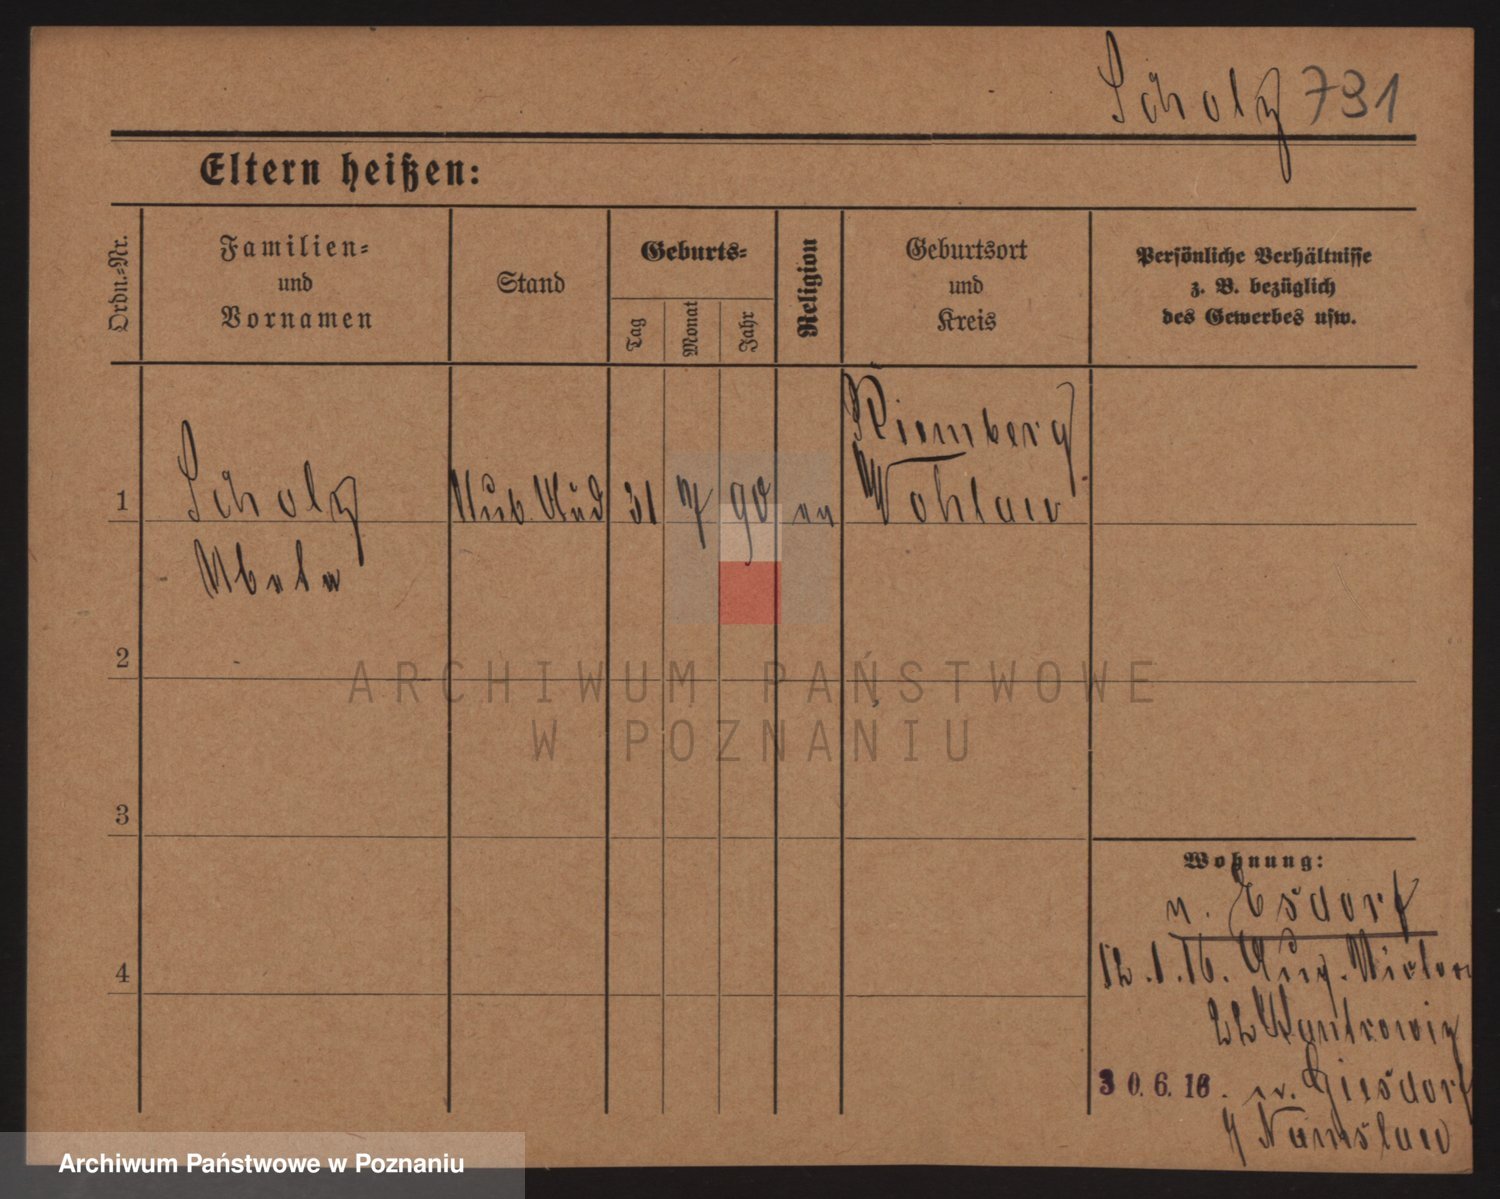 Scholz 791
Eltern heißen:
Ordn.-Nr.
Familien-
und
Vornamen
Stand
Geburts-
Tag
Monat
Jahr
Religion
Geburtsort
und
Kreis
Persönliche Verhältnisse
z. B. bezüglich
des Gewerbes usw.
Riemberg
1 Scholz 31 7 90 ev Wohlau
2
3
4
Wohnung:
n.
12.1.16. Aug.
22 Kantrowiz
30.6.16. n. Giesdorf
Namslau
ARCHIWUM PAŃSTWOWE
W POZNANIU
Archiwum Państwowe w Poznaniu